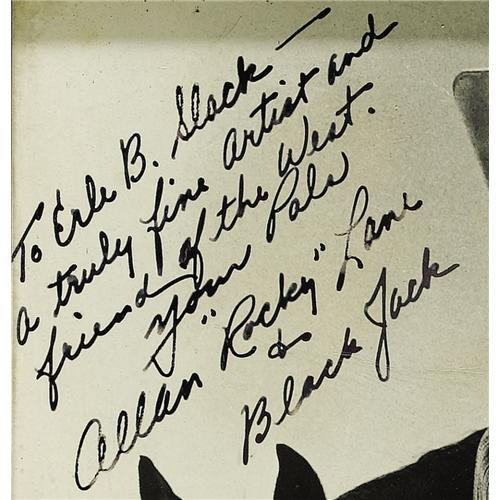 To Erle B. Slack —
a truly fine artist and
friend of the West.
Your Pals
Allan "Rocky" Lane
&
Black Jack